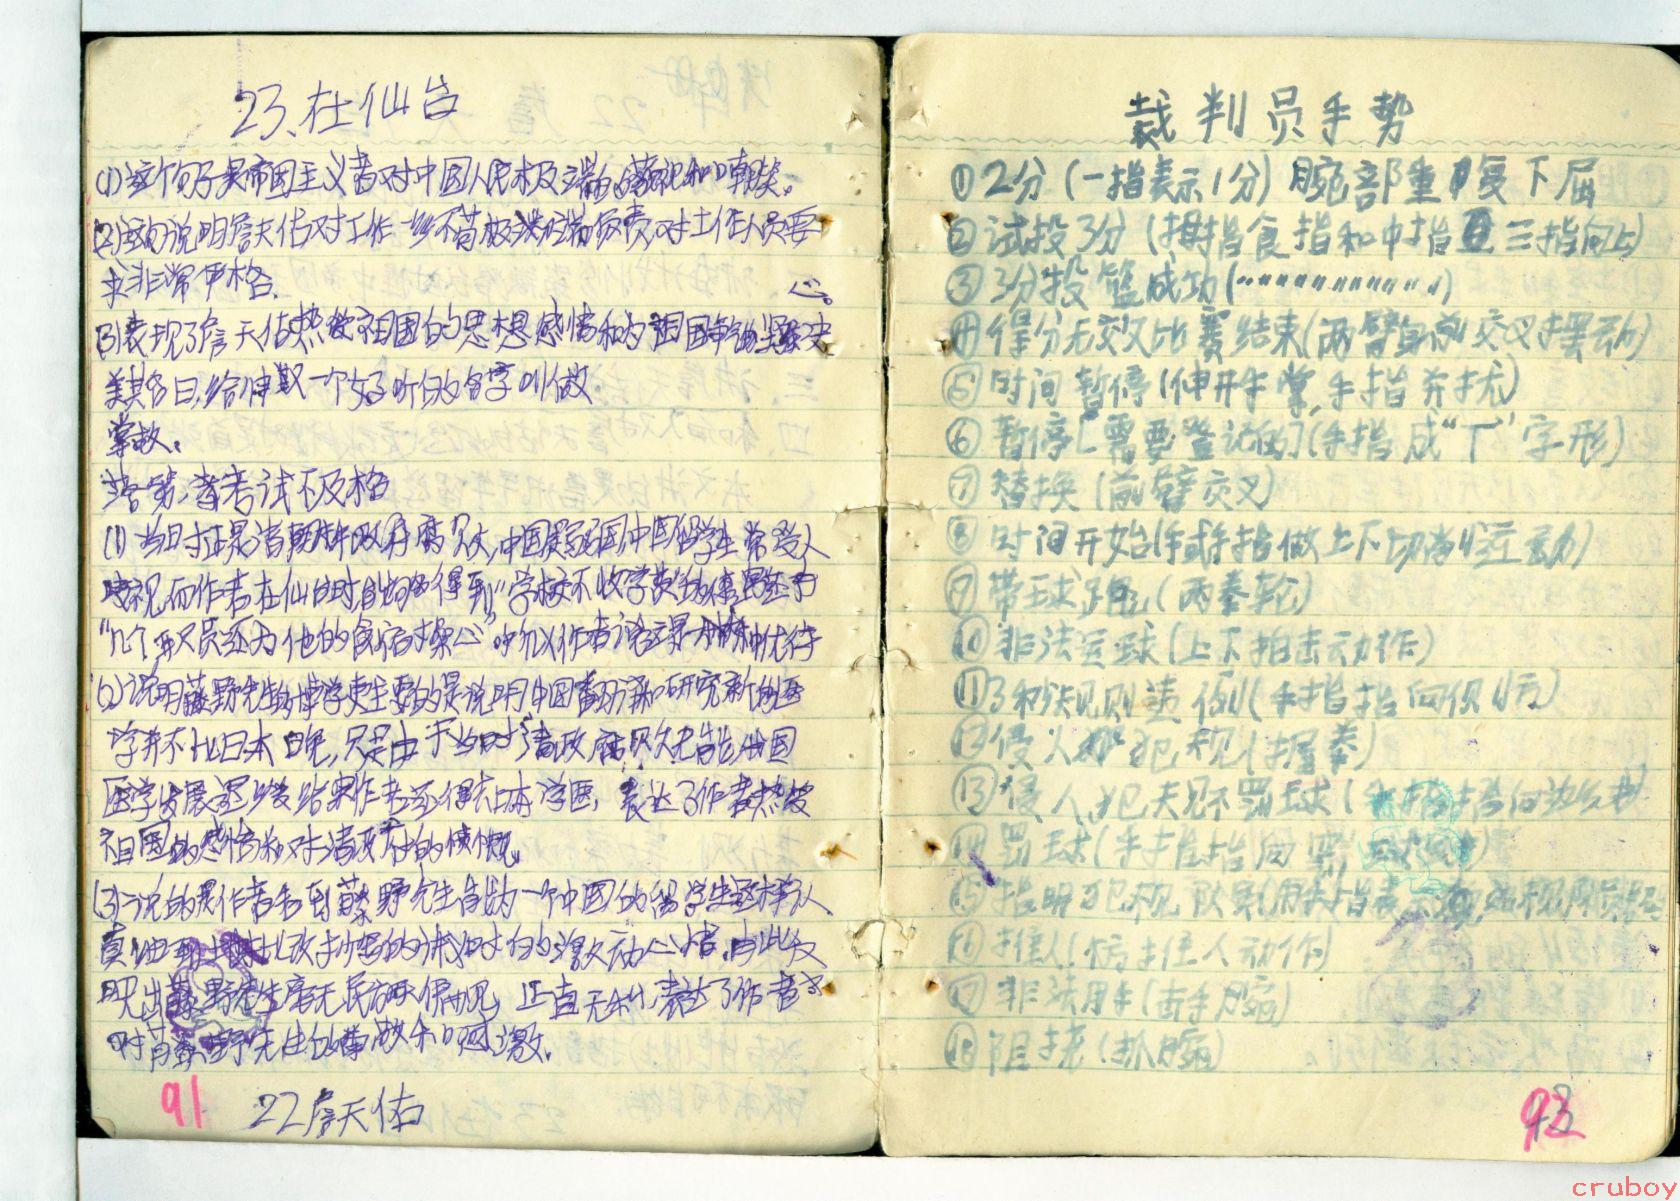 23、在仙台
(1)这个句子是帝国主义者对中国人民极端的藐视和嘲笑。
(2)这句说明詹天佑对工作一步不苟极端负责,对工作人员要
求非常严格。
心。
(3)表现了詹天佑热爱祖国的思想感情和为祖国争的坚决
美其名曰:给伸取一个好听的名字叫做
掌故:
落第:指考试不及格
(1)当时正是清朝腐败,中国是弱国,中国留学生常受人
歧视而作者在仙台时得到"学校不收学费
"几个职员还为他的食宿操心"所以作者说这是优待
(2)说明藤野先生主要的是说明中国翻译和研究新的医
学并不比日本晚,只是由于当时清政府无能
医学发展迟缓结果作者还得在日本学医,表达了作者热爱
祖国的感情和对清政府的愤慨。
(3)说的是作者看到藤野先生为一个中国的留学生这样认
真
映出藤野先生毫无民族偏见,正直无私,表达了作者
对藤野先生的尊敬和感激。
91
22詹天佑
裁判员手势
①2分(一指表示1分)腕部重复下屈
②试投3分(拇指食指和中指三指向上)
③3分投篮成功(〃〃〃〃〃〃)
④得分无效比赛结束(两臂身前交叉摆动)
⑤时间暂停(伸开手掌,手指并拢)
⑥暂停[需要登记的](手指成"T"字形)
⑦替换(前臂交叉)
⑧时间开始(手或手指做上下切的运动)
⑨带球跑(两拳轮)
⑩非法运球(上下拍击动作)
⑪3秒规则违例(手指指向侧方)
⑫侵人犯规(握拳)
⑬侵人犯规不罚球(手指指向边线)
⑭罚球(手指指向
⑮指明犯规队员(用手指表示
⑯推人(仿推人动作)
⑰非法用手(击手腕)
⑱阻挠(抓腕)
93
cruboy